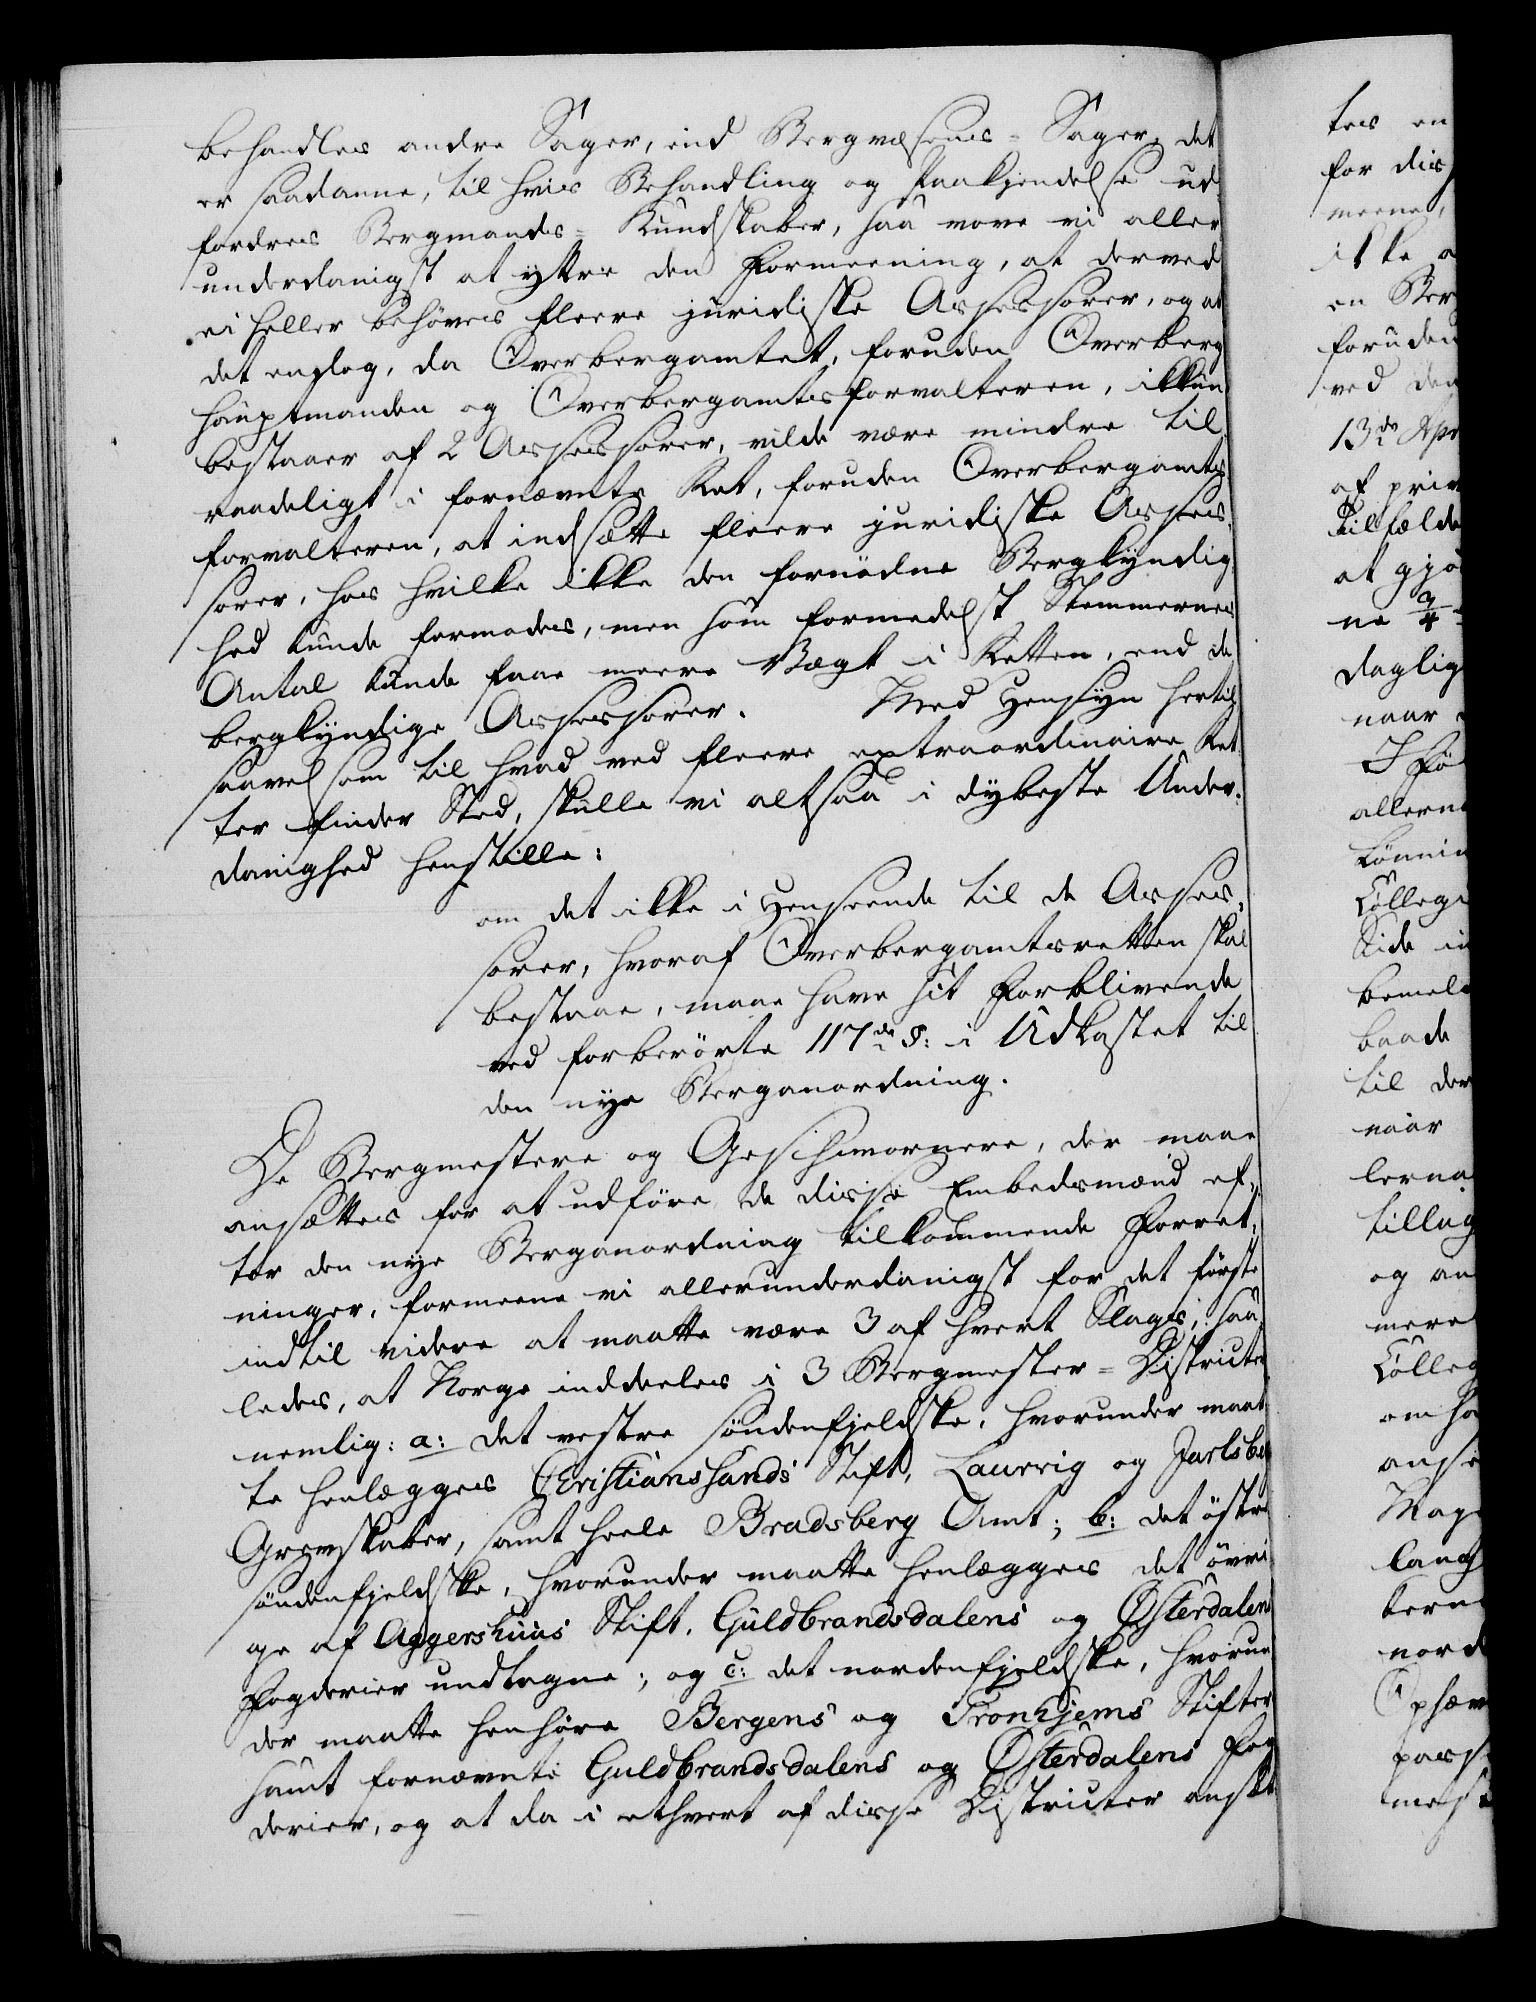 behandles andre Sager, end Bergvæsenes-Sager, det
er saadanne, til hvis Behandling og Paakjendelse ud
fordres Bergmands-Kundskaber, saa vove vi aller
underdanigst at yttre den Formeening, at derved
ei heller behöves fleere juridiske Assessorer, og at
det endog, da Overbergamtet, foruden Overberg
hauptmanden og Overbergamtsforvalteren, ikkun
bestaaer af 2 Assessorer, vilde være mindre til
raadeligt i fornævnte Ret, foruden Overbergamts
forvalteren, at indsætte fleere juridiske Asses
sorer, hos hvilke ikke den fornödne Bergkyndig
hed kunde formodes, men som formedelst Stemmernes
Antal kunde faae meere Vægt i Retten, end de
bergkyndige Assessorer. Med Hensyn hertil
saavelsom til hvad ved fleere extraordinaire Ret
ter finder Sted, skulle vi altsaa i dybeste Under-
danighed henstille:
om det ikke i Henseende til de Asses-
sorer, hvoraf Overbergamtsretten skal
bestaae, maae have sit Forblivende
ved forberörte 117de §: i Udkastet til
den nye Berganordning.
De Bergmestere og Geschwornere, der maae
ansættes for at udföre de disse Embedsmænd ef-
ter den nye Berganordning tilkommende Forret-
ninger, formeene vi allerunderdanigst for det förste
indtil videre at maatte være 3 af hvert Slags, saa
ledes, at Norge inddeeles i 3 Bergmester-Districter
nemlig: a: det vestre söndenfjeldske, hvorunder maat
te henlægges Christianssands Stift, Laurvig og Jarlsbe
Grevskaber, samt heele Bradsberg Amt; b: det östre
söndenfjeldske, hvorunder maatte henlægges det övri
ge af Aggershuus Stift, Guldbrandsdalens og Østerdalens
Fogderier undtagne; og c: det nordenfjeldske, hvorun
der maatte henhöre Bergens og Tronhjems Stifter
samt fornævnte Guldbrandsdalens og Østerdalens Fog
derier, og at da i ethvert af disse Districter ansat
tes en
for dis
meene,
ikke a
en Ber
foruden
ved den
13de Apr
af priv
Tilfælde
at gjö
ne
daglig
naar
allern
Lönnin
Colleg
Side in
bemel
baade
til der
naar
lerna
tillag
og an
mere
Colleg
om ha
anse
lang
tern
nord
Ophæv
pass
mest